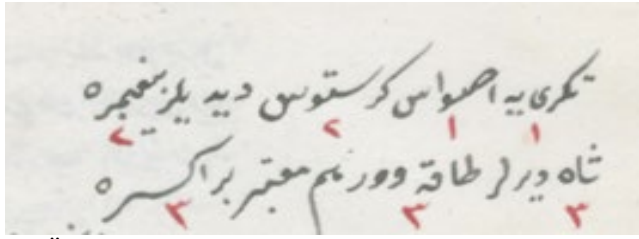 تکری یه اصواس کرستوس دید یلر پیغمبره
١ ١ ٢ ٢
شاه دیرلر طاقه وور نم معتبر بر اکسره
٣ ٣ ٣